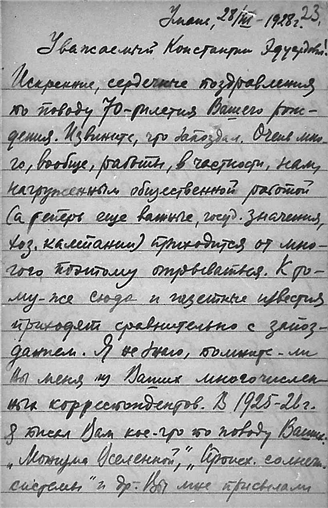 28/III - 1928 г. 23.
Уважаемый Константин Эдуардович!
Искренние, сердечные поздравления
по поводу 70-тилетия Вашего рож-
дения. Извините, что запоздал. Очень мно-
го, вообще, работы, в частности, нам,
нагруженным общественной работой
(а теперь еще важные, госуд. значения,
хоз. кампании) приходится от мно-
гого поэтому отрываться. К то-
му-же сюда и газетные известия
приходят сравнительно с запоз-
данием. Я не знаю, помните-ли
Вы меня из Ваших многочислен-
ных корреспондентов. В 1925-26 г.
я писал Вам кое-что по поводу Ваших
„Монизма Вселенной", „Происх. солнечн.
системы" и др. Вы мне присылали